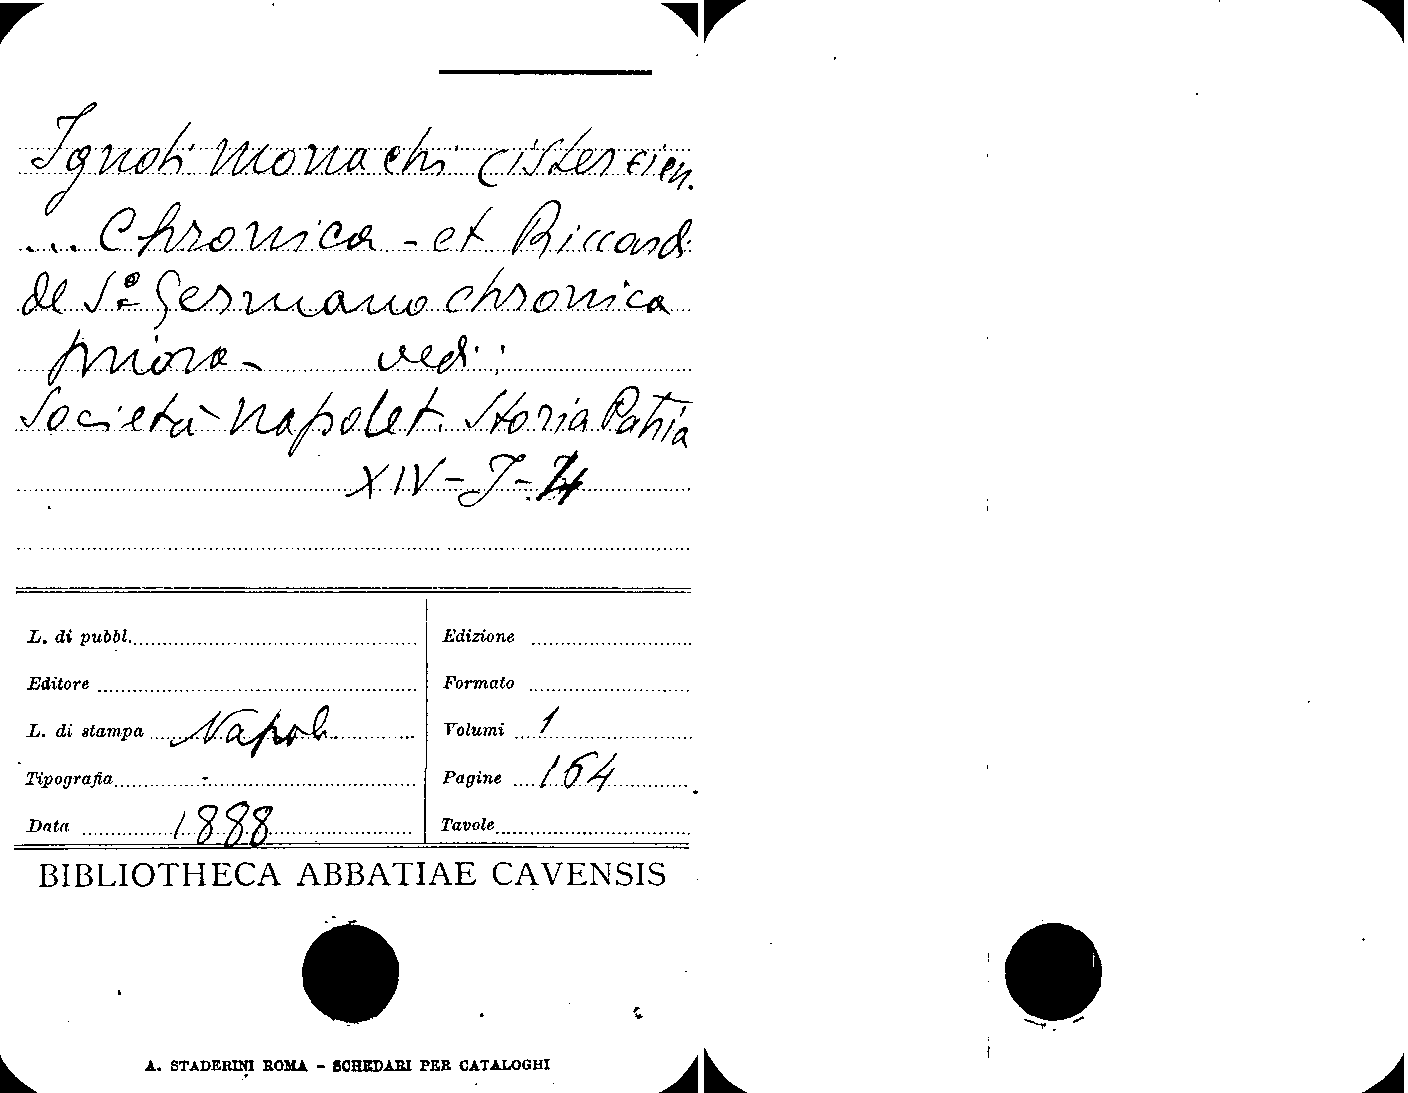 Ignoti Monachi Cistercien.
... Chronica - et Riccardi
de So Germano chronica
priora - vedi:
Società Napolet. Storia Patria
XIV - J -
L. di pubbl. Edizione
Editore Formato
L. di stampa Napoli Volumi 1
Tipografia - Pagine 164
Data 1888 Tavole
BIBLIOTHECA ABBATIAE CAVENSIS
A. STADERINI ROMA - SCHEDARI PER CATALOGHI